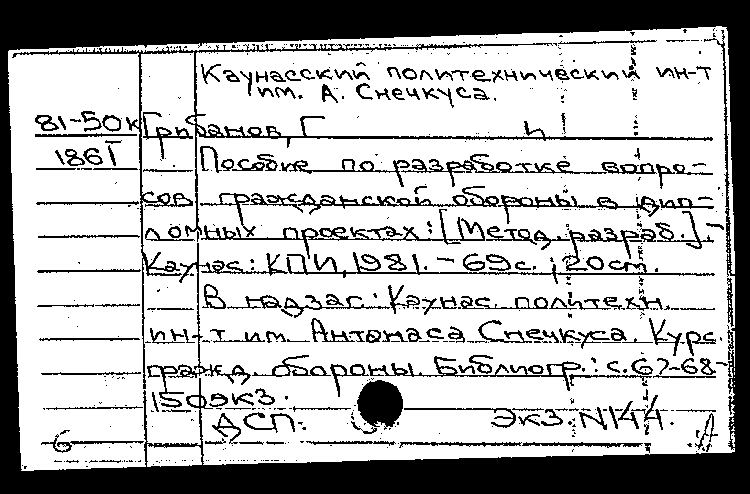 Каунасский политехнический ин-т
им. А. Снечкуса.
81-50к Грибанов, Г
186Т Пособие по разработке вопро-
сов гражданской обороны в дип-
ломных проектах: [Метод. разраб.].-
Каунас: КПИ, 1981. - 69с.; 20см.
В надзаг.: Каунас. политехн.
ин-т им. Антанаса Снечкуса. Курс.
гражд. обороны. Библиогр.: с. 67-68-
150экз.
ДСП: экз. N144.
6